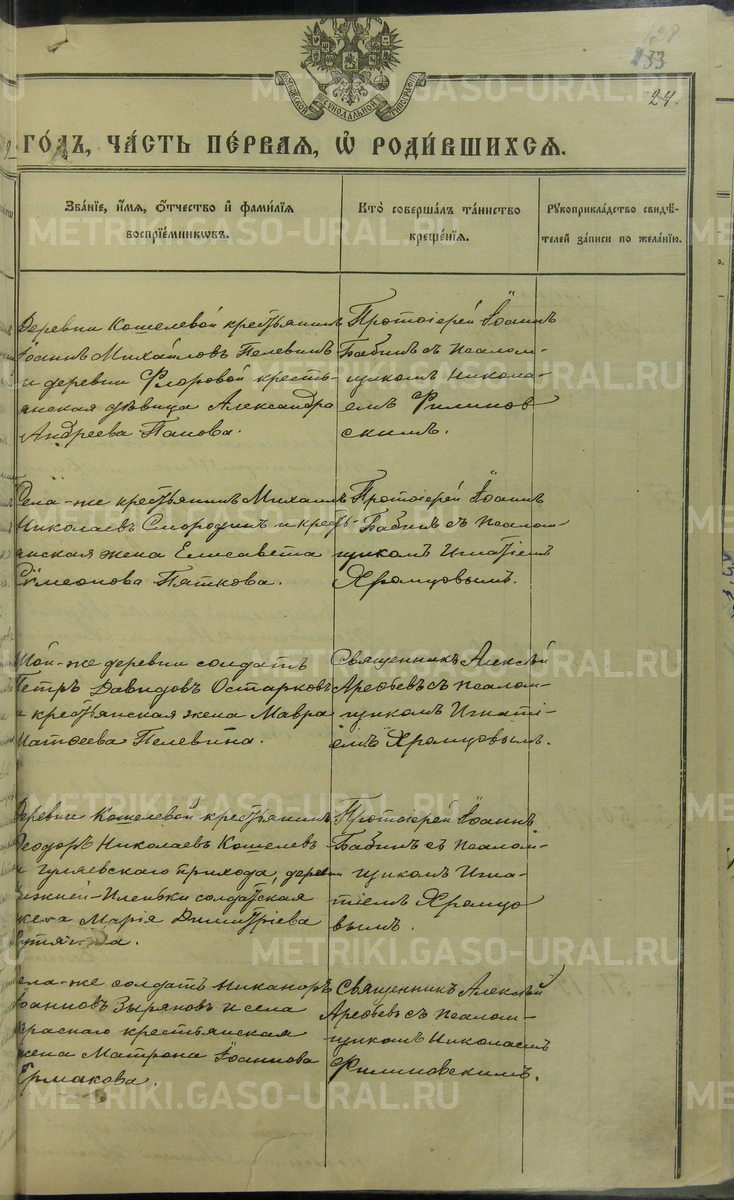 133
24.
МОСКОВСКОЙ СѴНОДАЛЬНОЙ ТИПОГРАФІИ
ГО́ДЪ, ЧА́СТЬ ПЕ́РВАЯ, Ѡ РОДИ́ВШИХСЯ.
Зва́нїе, и҆́мя, ѻ҆́тчество и҆ фами́лїя
воспрїе́мникѡвъ.
Кто̀ соверша́лъ та́инство
креще́нїѧ.
Рукоприкла́дство свидѣ́-
телей за́писи по жела́нїю.
Деревни Кошелевой крестьянинъ
Іоаннъ Михайловъ Пелевинъ
и деревни Фроровой кресть-
янская дѣвица Александра
Андреева Панова.
Протоіерей Іоаннъ
Бабинъ съ псалом-
щикомъ Никола-
емъ Филинов
скимъ.
Села-же крестьянинъ Михаилъ
Николаевъ Смородинъ и кресть-
янская жена Елисавета
Сѵмеонова Пяткова.
Протоіерей Іоаннъ
Бабинъ съ псалом-
щикомъ Игнатіемъ
Храмцовымъ.
Той-же деревни солдатъ
Петръ Давидовъ Остарковъ
и крестьянская жена Мавра
Матѳеева Пелевина.
Священникъ Алексѣй
Арефьевъ съ псалом-
щикомъ Игнаті-
емъ Храмцовымъ.
Деревни Кошелевой крестьянинъ
Ѳеодоръ Николаевъ Кошелевъ
и Гуляевскаго прихода, деревни
Нижней-Иленьки солдатская
жена Марія Димитріева
Протоіерей Іоаннъ
Бабинъ съ псалом-
щикомъ Игна-
тіемъ Храмцо
вымъ.
Села-же солдатъ Никаноръ
Іоанновъ Зыряновъ и села
Краснаго крестьянская
жена Матрона Іоаннова
Ермакова.
Священникъ Алексѣй
Арефьевъ съ псалом-
щикомъ Николаемъ
Филиновскимъ.
METRIKI.GASO-URAL.RU
METRIKI.GASO-URAL.RU
METRIKI.GASO-URAL.RU
METRIKI.GASO-URAL.RU
METRIKI.GASO-URAL.RU
METRIKI.GASO-URAL.RU
METRIKI.GASO-URAL.RU
METRIKI.GASO-URAL.RU